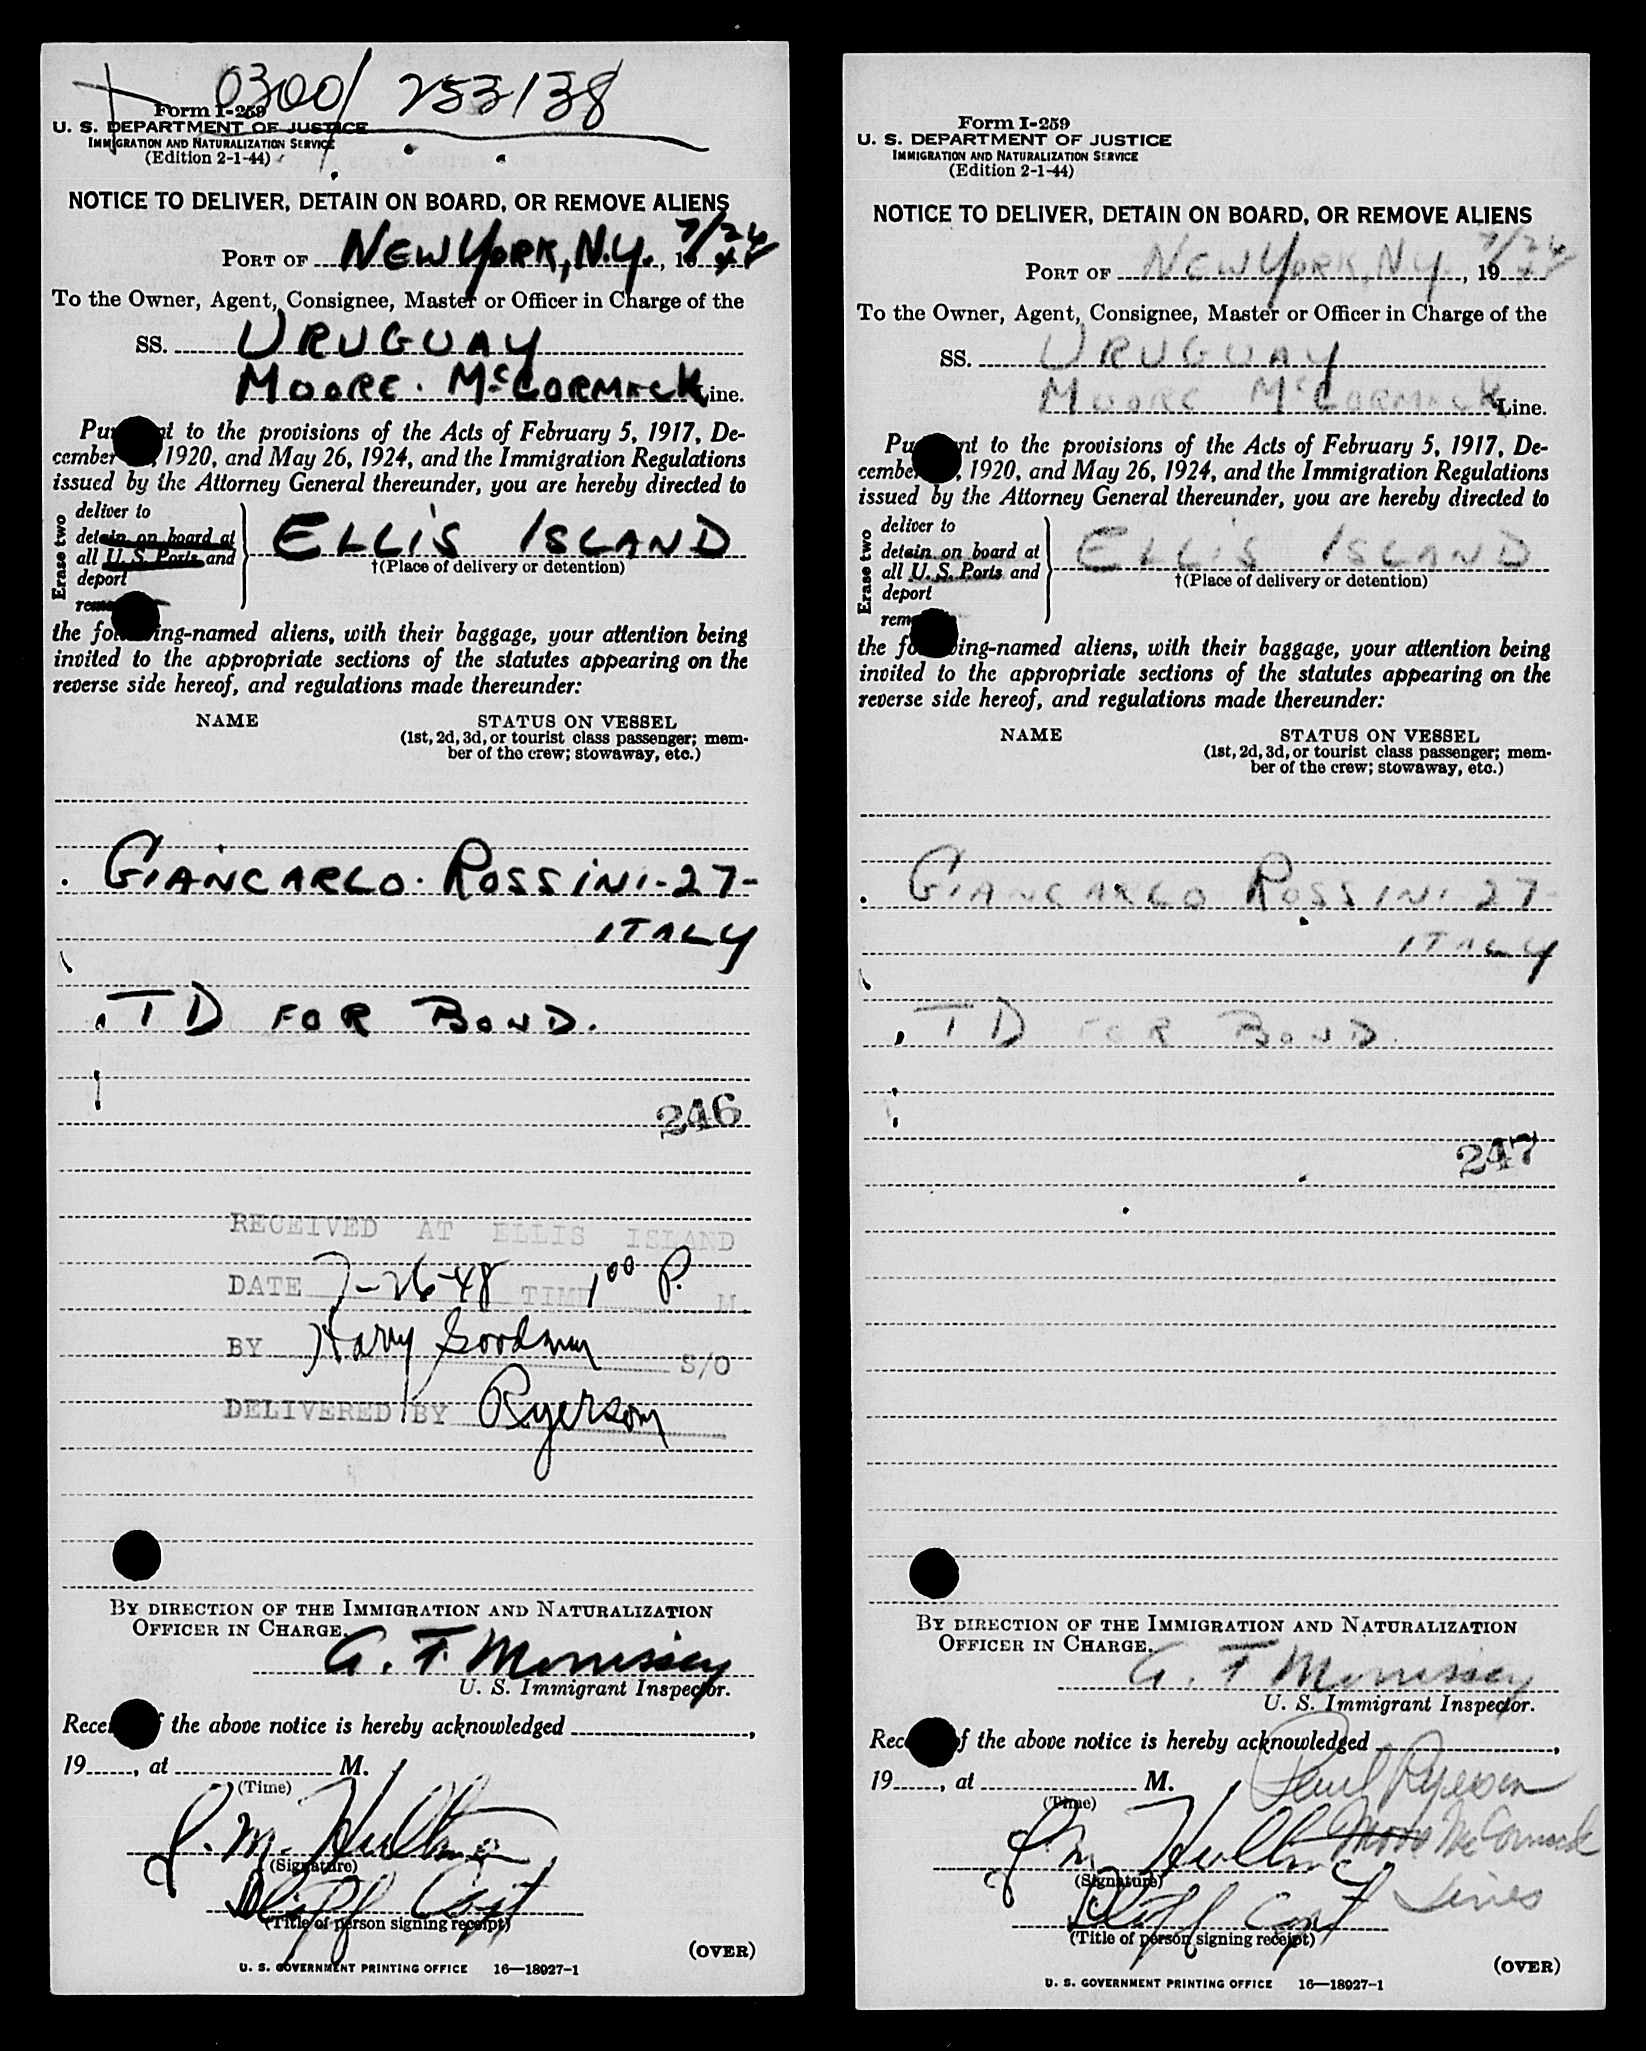 0300/ 253/38
Form I-259
U. S. DEPARTMENT OF JUSTICE
IMMIGRATION AND NATURALIZATION SERVICE
(Edition 2-1-44)
NOTICE TO DELIVER, DETAIN ON BOARD, OR REMOVE ALIENS
PORT OF NEW YORK, N.Y., 7/26 19
To the Owner, Agent, Consignee, Master or Officer in Charge of the
SS. URUGUAY
MOORE. McCORMACK Line.
Pu nt to the provisions of the Acts of February 5, 1917, De-
cember , 1920, and May 26, 1924, and the Immigration Regulations
issued by the Attorney General thereunder, you are hereby directed to
Erase two
deliver to
detain on board at
all U. S. Ports and
deport
rem
ELLIS ISLAND
†(Place of delivery or detention)
the fo ing-named aliens, with their baggage, your attention being
invited to the appropriate sections of the statutes appearing on the
reverse side hereof, and regulations made thereunder:
NAME STATUS ON VESSEL
(1st, 2d, 3d, or tourist class passenger; mem-
ber of the crew; stowaway, etc.)
GIANCARLO. ROSSINI-27-
ITALY
TD FOR BOND.
246
RECEIVED AT ELLIS ISLAND
DATE 7-26-48 TIME 1 00 P. M.
BY Harry Goodman S/O
DELIVERED BY Ryerson
BY DIRECTION OF THE IMMIGRATION AND NATURALIZATION
OFFICER IN CHARGE.
G. F. Morrissey
U. S. Immigrant Inspector.
Rece f the above notice is hereby acknowledged ,
19 , at M.
(Time)
J. M.
(Signature)
(Title of person signing receipt)
(OVER)
U. S. GOVERNMENT PRINTING OFFICE 16—18927-1
Form I-259
U. S. DEPARTMENT OF JUSTICE
IMMIGRATION AND NATURALIZATION SERVICE
(Edition 2-1-44)
NOTICE TO DELIVER, DETAIN ON BOARD, OR REMOVE ALIENS
PORT OF NEW YORK, N.Y., 7/26 19
To the Owner, Agent, Consignee, Master or Officer in Charge of the
SS. URUGUAY
MOORE McCORMACK Line.
Pu nt to the provisions of the Acts of February 5, 1917, De-
cember , 1920, and May 26, 1924, and the Immigration Regulations
issued by the Attorney General thereunder, you are hereby directed to
Erase two
deliver to
detain on board at
all U. S. Ports and
deport
rem
ELLIS ISLAND
†(Place of delivery or detention)
the fo ing-named aliens, with their baggage, your attention being
invited to the appropriate sections of the statutes appearing on the
reverse side hereof, and regulations made thereunder:
NAME STATUS ON VESSEL
(1st, 2d, 3d, or tourist class passenger; mem-
ber of the crew; stowaway, etc.)
GIANCARLO ROSSINI 27-
ITALY
TD FOR BOND.
247
BY DIRECTION OF THE IMMIGRATION AND NATURALIZATION
OFFICER IN CHARGE.
G. F Morrissey
U. S. Immigrant Inspector.
Rec f the above notice is hereby acknowledged ,
19 , at M. Paul Ryerson
(Time)
J. M. Moore McCormack
(Signature)
Lines
(Title of person signing receipt)
(OVER)
U. S. GOVERNMENT PRINTING OFFICE 16—18927-1